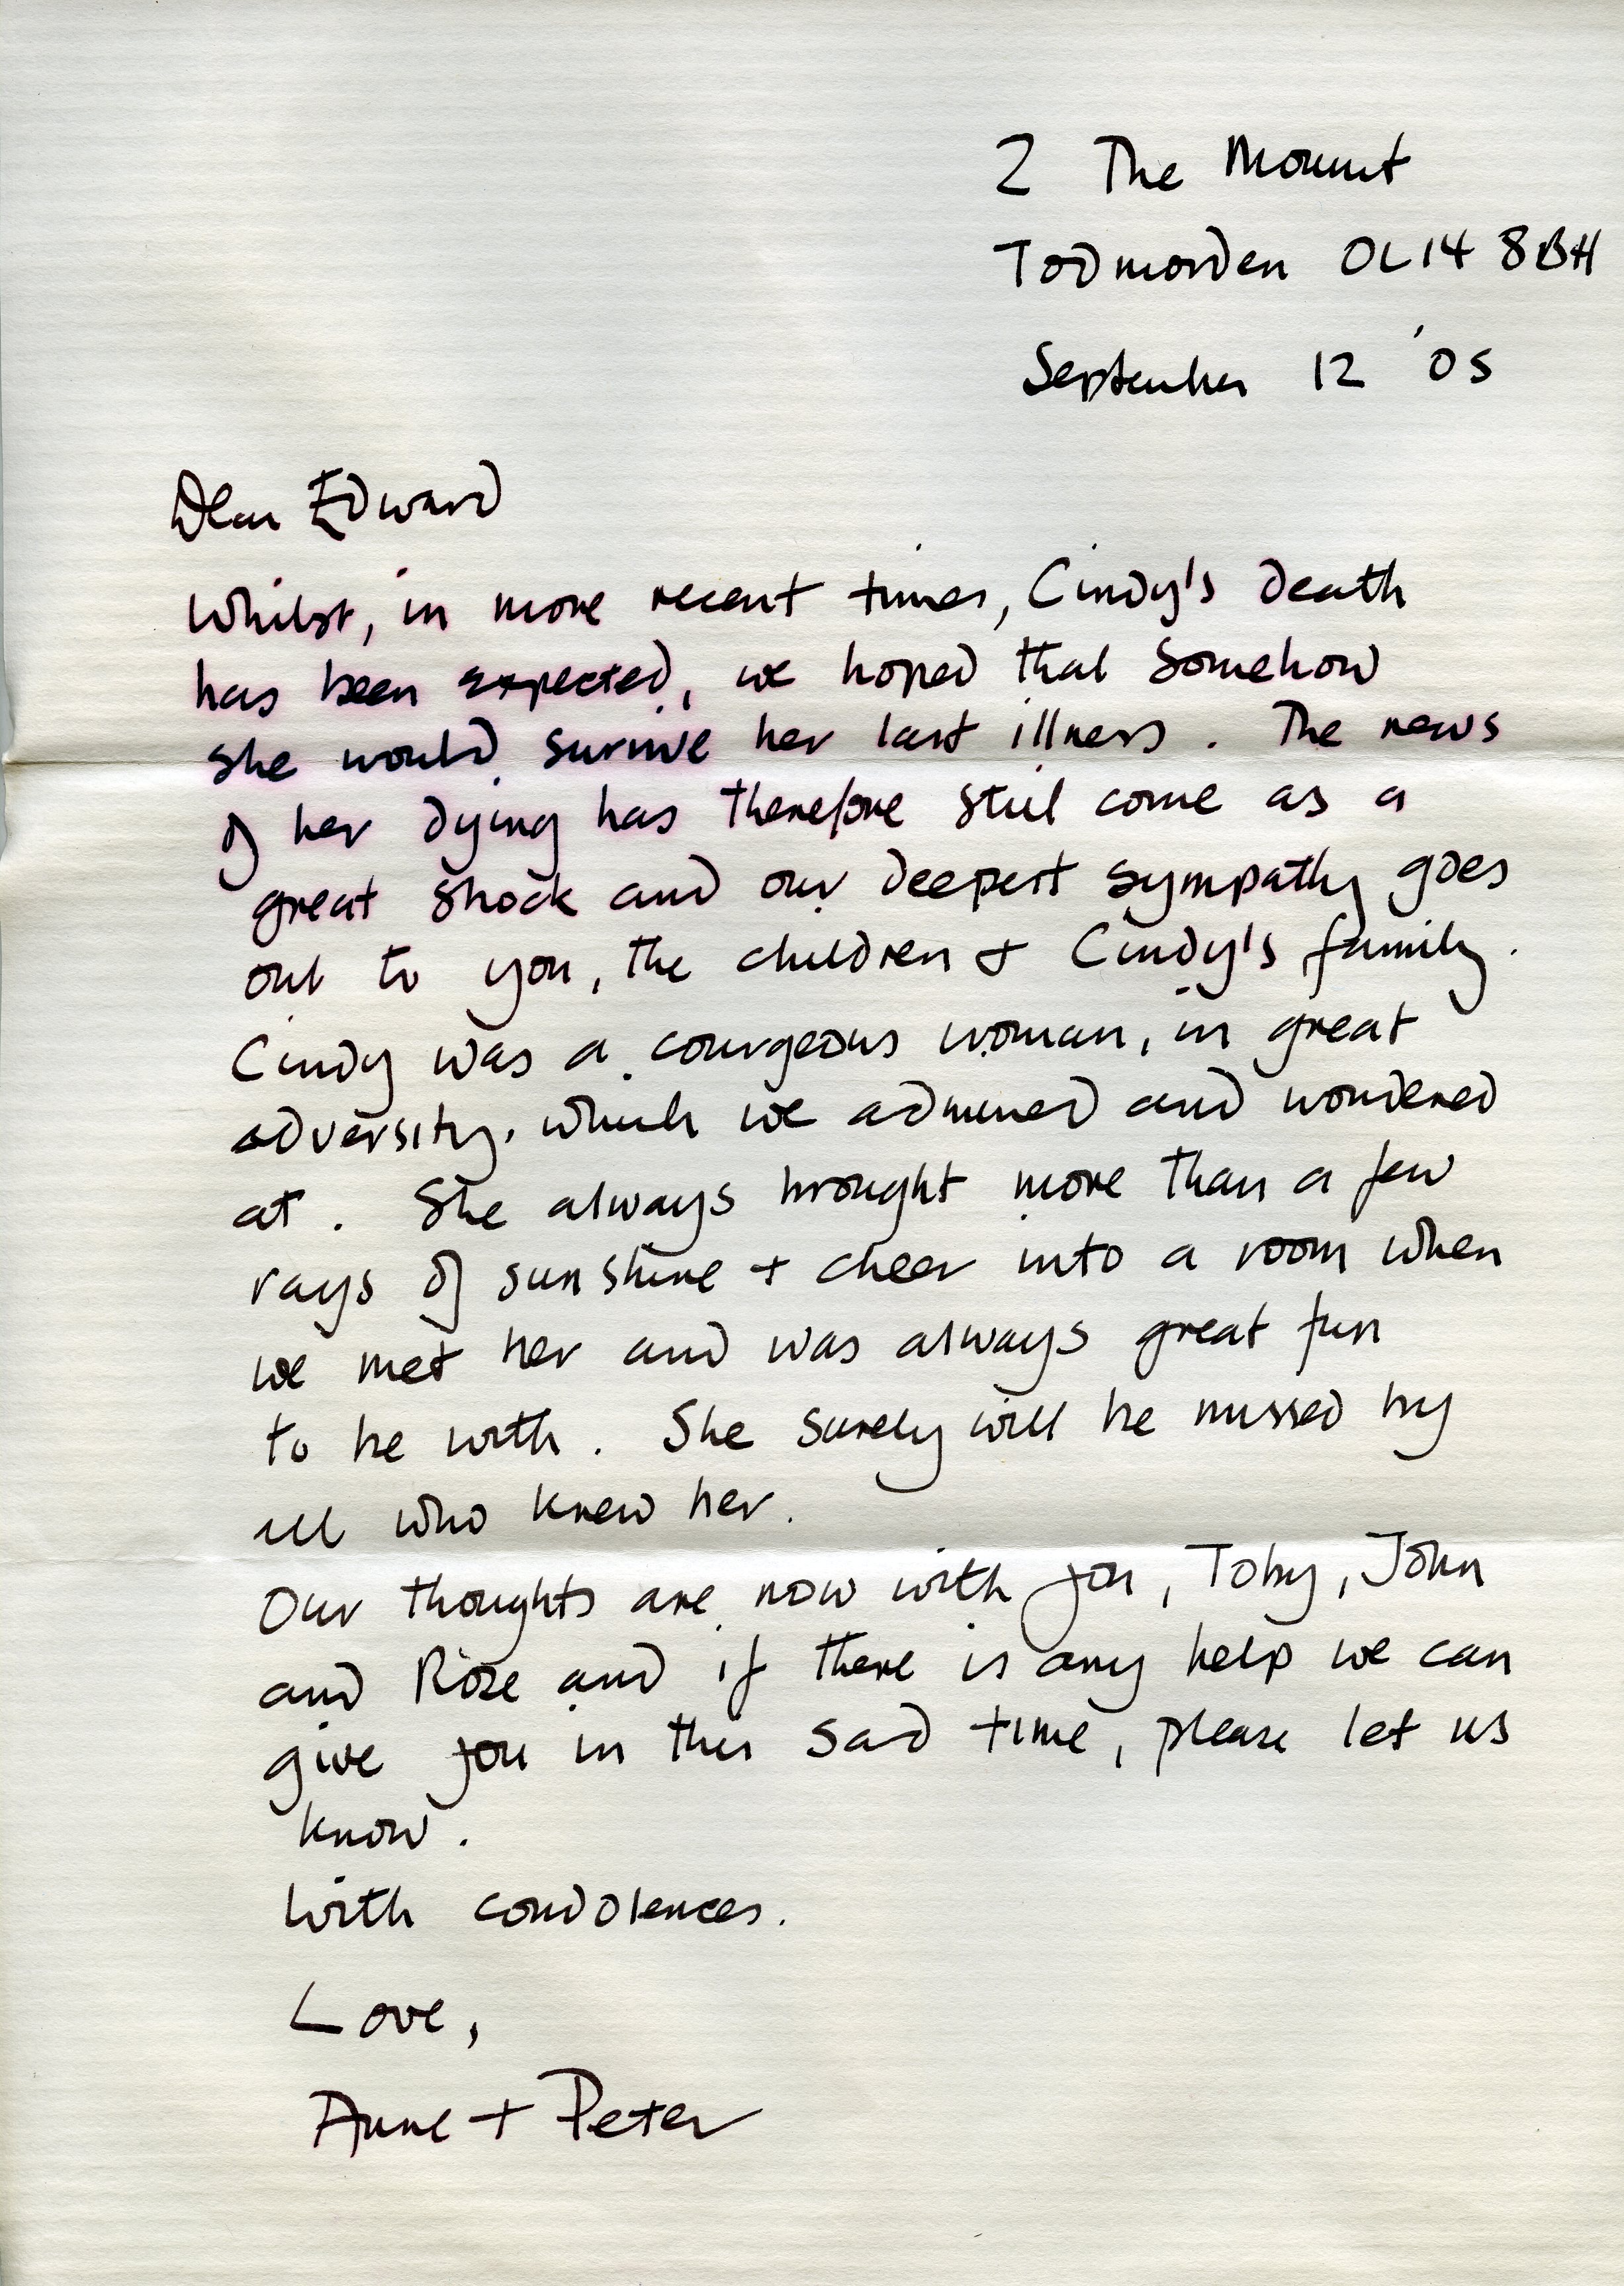 2 The Mount
Todmorden OL14 8BH
September 12 '05
Dear Edward
Whilst, in more recent times, Cindy's death
has been expected, we hoped that somehow
she would survive her last illness. The news
of her dying has therefore still come as a
great shock and our deepest sympathy goes
out to you, the children + Cindy's family.
Cindy was a courgeous woman, in great
adversity, which we admired and wondered
at. She always brought more than a few
rays of sunshine + cheer into a room when
we met her and was always great fun
to be with. She surely will be missed by
all who knew her.
Our thoughts are now with you, Toby, John
and Rose and if there is any help we can
give you in this sad time, please let us
know.
With condolences.
Love,
Anne + Peter